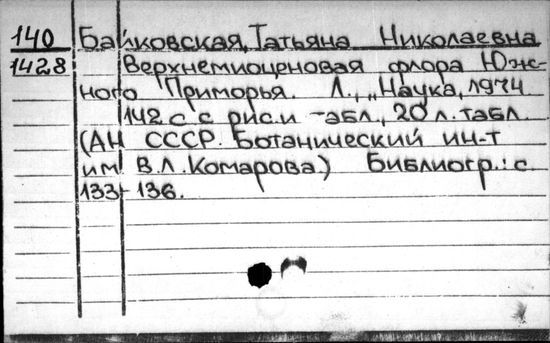 140 Байковская, Татьяна Николаевна
1428 Верхнемиоценовая флора Юж-
ного Приморья. Л., „Наука, 1974
142 с. с рис. и табл., 20 л. табл.
(АН СССР. Ботанический ин-т
им. В.Л. Комарова.) Библиогр.: с.
133-136.